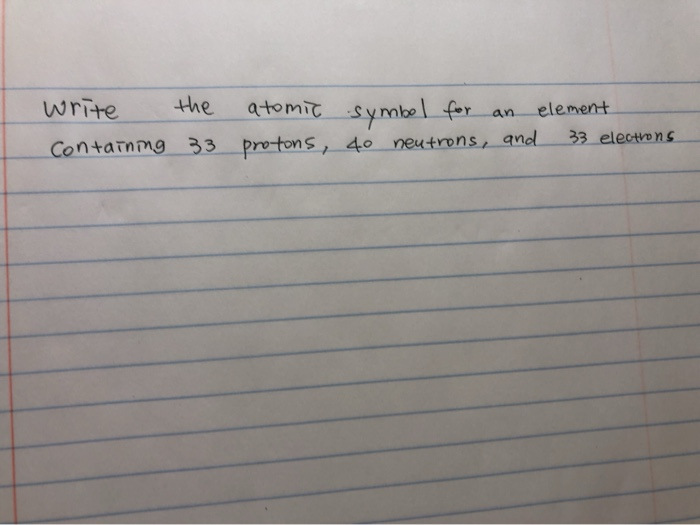 Write the atomic symbol for an element
Containing 33 protons, 40 neutrons, and 33 electrons